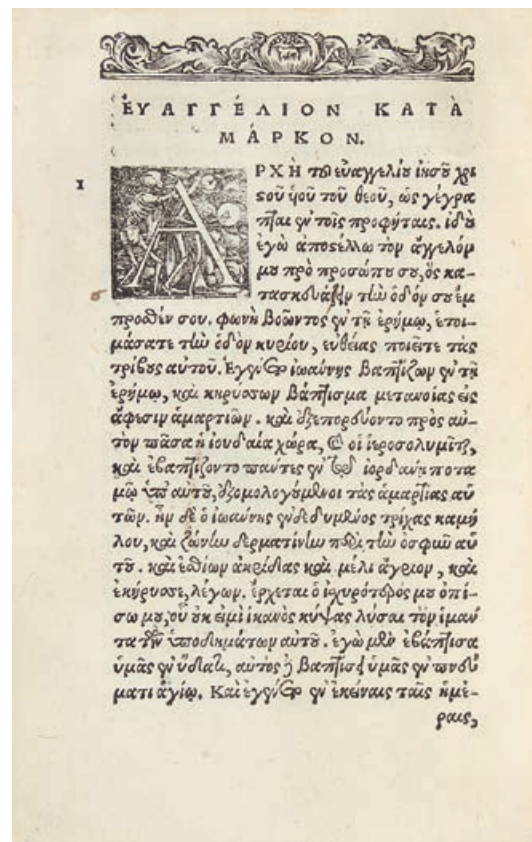 ΕΥΑΓΓΈΛΙΟΝ ΚΑΤᾺ
ΜΆΡΚΟΝ.
1
ΑΡΧῊ τοῦ εὐαγγελίου ἰησοῦ χρι
ςοῦ ὑοῦ τοῦ θεοῦ, ὡς γέγρα
πται ἐν τοῖς προφήταις. ἰδοὺ
ἐγὼ ἀποςέλλω τὸν ἄγγελόν
μου πρὸ προσώπου σου, ὃς κα-
τασκευάσει τὴν ὁδόν σου ἔμ
προσθέν σου. φωνὴ βοῶντος ἐν τῇ ἐρήμῳ, ἑτοι-
μάσατε τὴν ὁδὸν κυρίου, εὐθείας ποιεῖτε τὰς
τρίβους αὐτοῦ. Ἐγένετο ἰωάννης βαπτίζων ἐν τῇ
ἐρήμῳ, καὶ κηρύσσων βάπτισμα μετανοίας εἰς
ἄφεσιν ἁμαρτιῶν. καὶ ἐξεπορεύοντο πρὸς αὐ-
τὸν πᾶσα ἡ ἰουδαία χώρα, καὶ οἱ ἱεροσολυμῖται,
καὶ ἐβαπτίζοντο πάντες ἐν τῷ ἰορδάνῃ ποτα
μῷ ὑπ' αὐτοῦ, ἐξομολογούμενοι τὰς ἁμαρτίας αὐ
τῶν. ἦν δὲ ὁ ἰωάννης ἐνδεδυμένος τρίχας καμή
λου, καὶ ζώνην δερματίνην περὶ τὴν ὀσφὺν αὐ
τοῦ. καὶ ἐσθίων ἀκρίδας καὶ μέλι ἄγριον, καὶ
ἐκήρυσσε, λέγων. ἔρχεται ὁ ἰσχυρότερός μου ὀπί-
σω μου, οὗ οὐκ εἰμὶ ἱκανὸς κύψας λῦσαι τὸν ἱμάν
τα τῶν ὑποδημάτων αὐτοῦ. ἐγὼ μὲν ἐβάπτισα
ὑμᾶς ἐν ὕδατι, αὐτὸς δὲ βαπτίσει ὑμᾶς ἐν πνεύ
ματι ἁγίῳ. Καὶ ἐγένετο ἐν ἐκείναις ταῖς ἡμέ-
ραις,